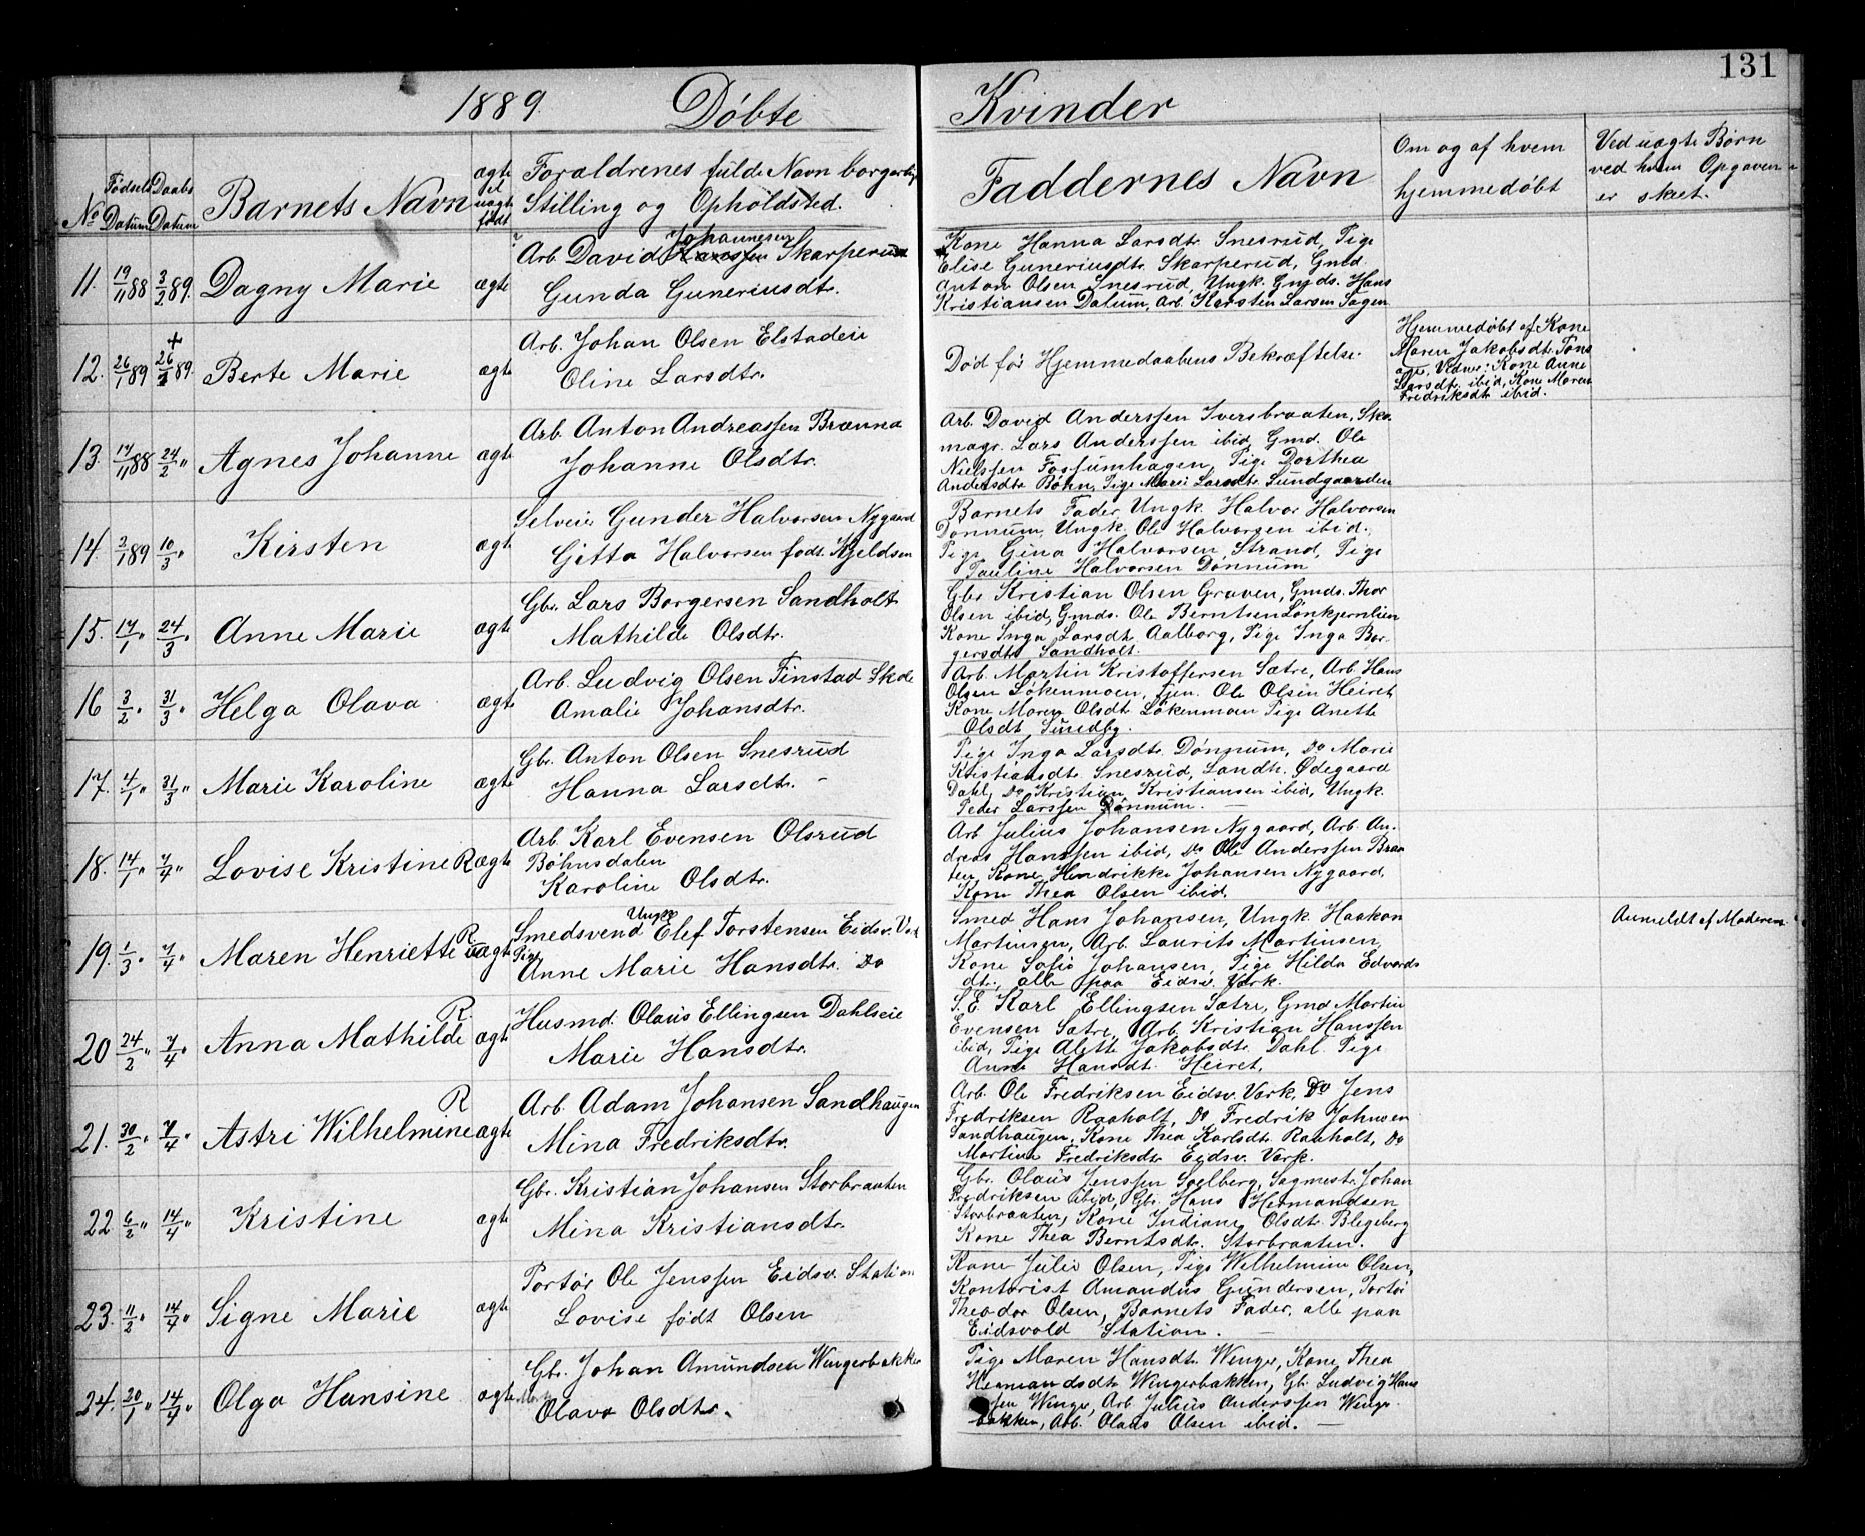 131
1889. Döbte Kvinder
No
Fødsels Datum
Daabs Datum
Barnets Navn
ægte el uægte født
Foraldrenes fulde Navn borgerlig
Stilling og Opholdsted.
Faddernes Navn
Om og af hvem
hjemmedøbt
Ved uægte Børn
ved hvem Opgaven
er skeet.
11. 19/11 88 3/2 89. Dagny Marie ægte
Arb. David Johannesen Skarperud
Gunda Guneriusdtr.
Kone Hanna Larsdtr. Snesrud, Pige
Elise Guneriusdtr. Skarperud, Gmd.
Anton Olsen Snesrud, Ungk. Gmds. Hans
Kristiansen Dalum, Arb. Karsten Larsen Sagen
12. 26/1 89 + 26/1 89. Berte Marie ægte
Arb. Johan Olsen Elstadeie
Oline Larsdtr.
Død før Hjemmedaabens Bekræftelse.
Hjemmedøbt af Kone
Maren Jakobsdtr.
Vidner: Kone Anne
Larsdtr. ibid, Kone Maren
Fredriksdtr ibid.
13. 14/11 88 24/2 " Agnes Johanne ægte
Arb. Anton Andreassen Brænna
Johanne Olsdtr.
Arb. David Anderssen Iversbraaten, Sko-
magr. Lars Anderssen ibid, Gmd. Ole
Nielssen Fossumhagen, Pige Dorthea
Andersdtr Bøhn, Pige Marie Larsdtr. Sundgaarden
14. 2/1 89 10/3 " Kirsten ægte
Selveier Gunder Halvorsen Nygaard
Gitta Halvorsen født Kjeldsen
Barnets Fader, Ungk. Halvor Halvorsen
Dønnum, Ungk. Ole Halvorsen ibid.
Pige Gina Halvorsen, Strand, Pige
Pauline Halvorsen Dønnum
15. 14/1 " 24/3 " Anne Marie ægte
Gbr. Lars Borgersen Sandholt
Mathilde Olsdtr.
Gbr Kristian Olsen Graven, Gmds. Thor
Olsen ibid, Gmds. Ole Berntsen Lønkjernlien
Kone Inga Larsdtr. Aalborg, Pige Inga Bor-
gersdtr Sandholt.
16 3/2 " 31/3 " Helga Olava ægte
Arb. Ludvig Olsen Finstad Skole
Amalie Johansdtr.
Arb. Martin Kristoffersen Sætre, Arb. Hans
Olsen Løkenmoen, Tjen. Ole Olsen Heiret
Kone Maren Olsdt Løkenmoen Pige Anette
Olsdt Sundby.
17. 4/1 " 31/3 " Marie Karoline ægte
Gbr. Anton Olsen Snesrud
Hanna Larsdtr. -
Pige Inga Larsdtr. Dønnum, Do Marie
Kristiansdtr. Snesrud, Landh. Ødegaard
Dahl, Do Kristian Kristiansen ibid, Ungk.
Peder Larssen Dønnum. -
18. 14/1 " 7/4 " Lovise Kristine R ægte
Arb. Karl Evensen Olsrud
Bøhnsdalen
Karoline Olsdtr.
Arb Julius Johansen Nygaard, Arb. An-
dreas Hanssen ibid, Do Ole Anderssen Braa
ten, Kone Hendrikke Johansen Nygaard,
Kone Thea Olsen ibid.
19. 1/3 " 7/4 " Maren Henriette R uægte
Smedsvend Ungk Elef Torstensen Eidsv. Værk
Pige
Anne Marie Hansdtr. Do
Smed Hans Johansen, Ungk. Haakon
Martinsen, Arb. Laurits Martinsen,
Kone Sofie Johansen, Pige Hilda Edvards
dtr., alle paa Eidsv. Værk.
Anmeldt af Moderen
20 24/2 " 7/4 " Anna Mathilde R. ægte
Husmd. Olaus Ellingsen Dahlseie
Marie Hansdtr.
S. E. Karl Ellingsen Sætre, Gmd Martin
Evensen Sætre, Arb. Kristian Hanssen
ibid, Pige Alette Jakobsdtr. Dahl. Pige
Anne Hansdt. Heiret,
21. 20/2 " 7/4 " Astri Wilhelmine R ægte
Arb. Adam Johansen Sandhaugen
Mina Fredriksdtr.
Arb. Ole Fredriksen Eidsv. Værk, Do Jens
Fredriksen Raaholt, Do Fredrik Johnsen
Sandhaugen, Kone Thea Karlsdtr. Raaholt, Do
Martine Fredriksdtr Eidsv. Værk.
22 6/2 " 14/4 " Kristine ægte
Gbr. Kristian Johansen Storbraaten
Mina Kristiansdtr.
Gbr. Olaus Jenssen Solberg, Sagmestr. Johan
Fredriksen ibid, Gbr. Hans Hermandsen
Storbraaten, Kone Indiane Olsdtr. Blegeberg
Kone Thea Berntsdtr. Storbraaten.
23. 11/2 " 14/4 " Signe Marie ægte
Portør Ole Jenssen Eidsv. Station
Lovise født Olsen
Kone Julie Olsen, Pige Wilhelmine Olsen,
Kontorist Amandus Gundersen, Portør
Theodor Olsen, Barnets Fader, alle paa
Eidsvold Station.
24. 20/1 " 14/4 " Olga Hansine ægte
Gbr. Johan Amundsen Wengerbakken
Olava Olsdtr.
Pige Maren Hansdtr. Wenger, Kone Thea
Hermandsdtr Wengerbakken, Gbr Ludvig Hans
sen Wenger, Arb. Julius Anderssen Wenge
bakken, Arb. Olaus Olsen ibid. -